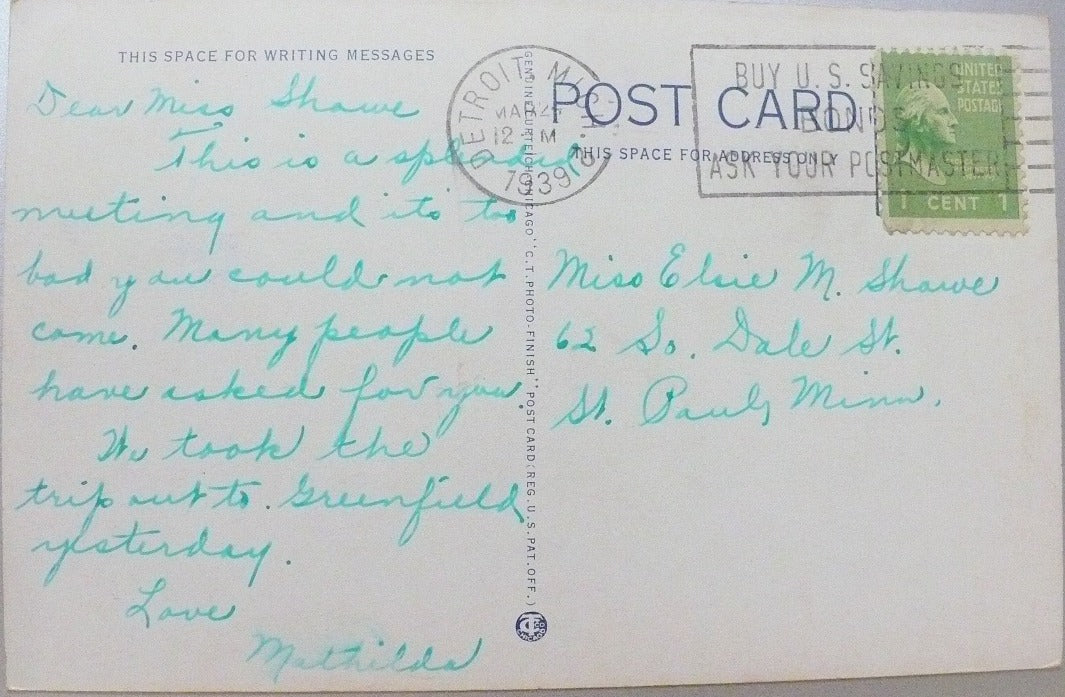 THIS SPACE FOR WRITING MESSAGES
Dear Miss Shawe
This is a splendid
meeting and its too
bad you could not
come. Many people
have asked for you.
We took the
trip out to Greenfield
yesterday.
Love
Mathilda
GENUINE CURTEICH-CHICAGO "C.T. PHOTO-FINISH" POST CARD (REG. U.S. PAT. OFF.)
DETROIT, MICH.
MAR 2
12 M
1939
POST CARD
THIS SPACE FOR ADDRESS ONLY
BUY U.S. SAVINGS
BONDS
ASK YOUR POSTMASTER
UNITED
STATES
POSTAGE
1 CENT 1
Miss Elsie M. Shawe
62 So. Dale St.
St. Paul, Minn.